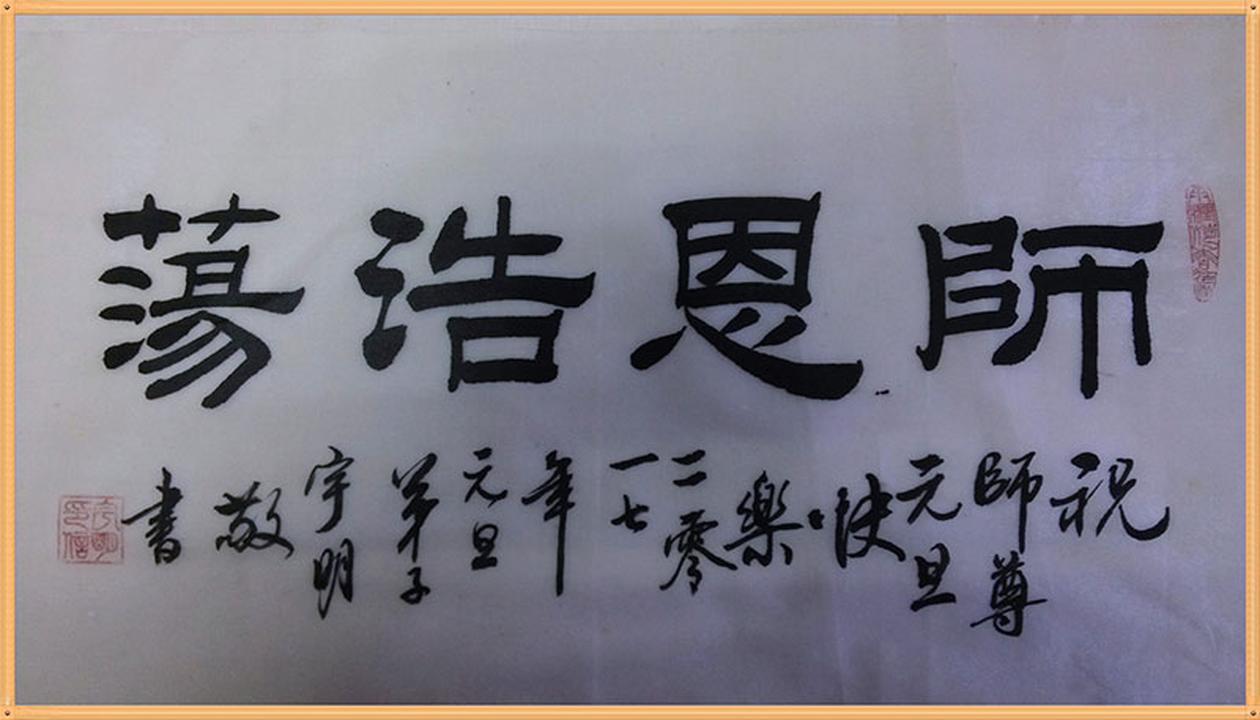 師恩浩蕩
祝師尊元旦快樂二零一七年元旦弟子宇明敬書
宇明印信